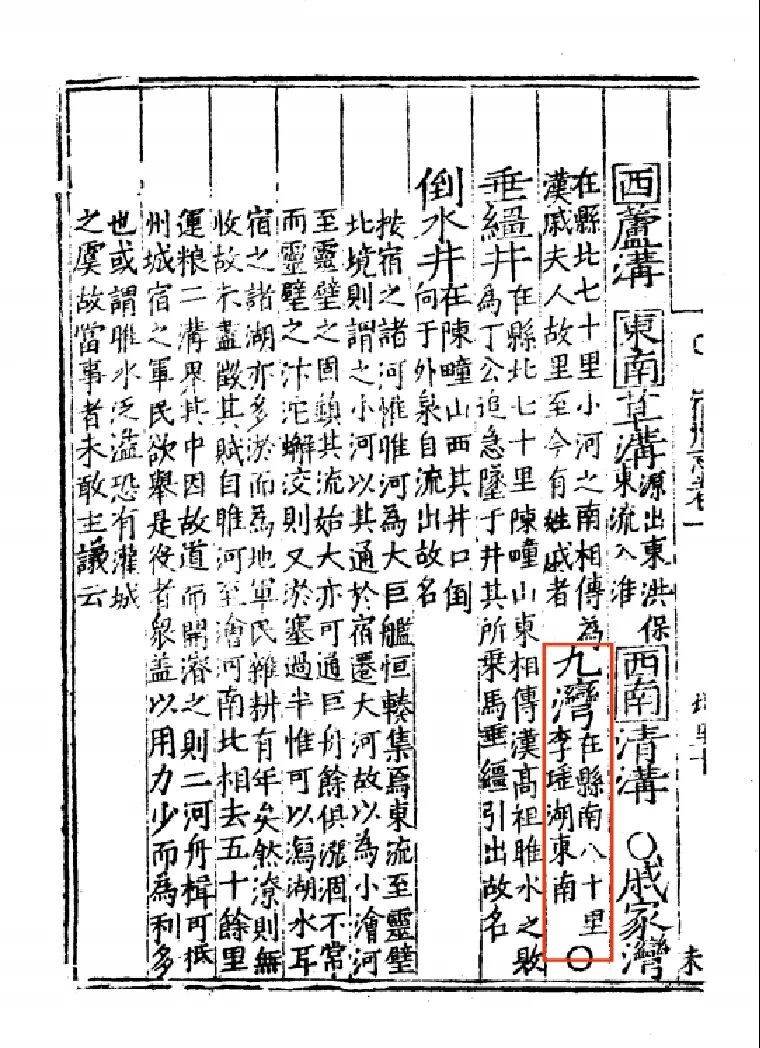 西蘆溝 東南草溝 源出東洪保
東流入淮 西南清溝 ○戚家灣
在縣北七十里小河之南相傳為
漢戚夫人故里至今有姓戚者
九灣 在縣南八十里
李瑤湖東南 ○
垂繮井 在縣北七十里陳疃山東相傳漢高祖睢水之敗
為丁公追急墜于井其所乘馬垂繮引出故名
倒水井 在陳疃山西其井口倒
向于外泉自流出故名
按宿之諸河惟睢河為大巨艦恒輳集焉東流至靈璧
北境則謂之小河以其通於宿遷大河故以為小澮河
至靈璧之固鎮其流始大亦可通巨舟餘俱漲涸不常
而靈璧之汴沱蠏洨則又淤塞過半惟可以瀉湖水耳
宿之諸湖亦多淤而為地軍民雜耕有年矣然潦則無
收故未盡徵其賦自睢河至澮河南北相去五十餘里
運粮二溝界其中因故道而開濬之則二河舟楫可抵
州城宿之軍民欲舉是役者衆盖以用力少而為利多
也或謂睢水泛溢恐有灌城
之虞故當事者未敢主議云